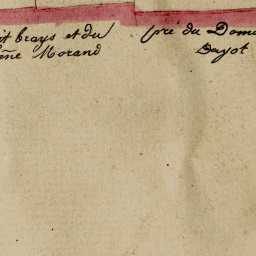 it brays et du
ène Morand
pré du Doma
Dayot